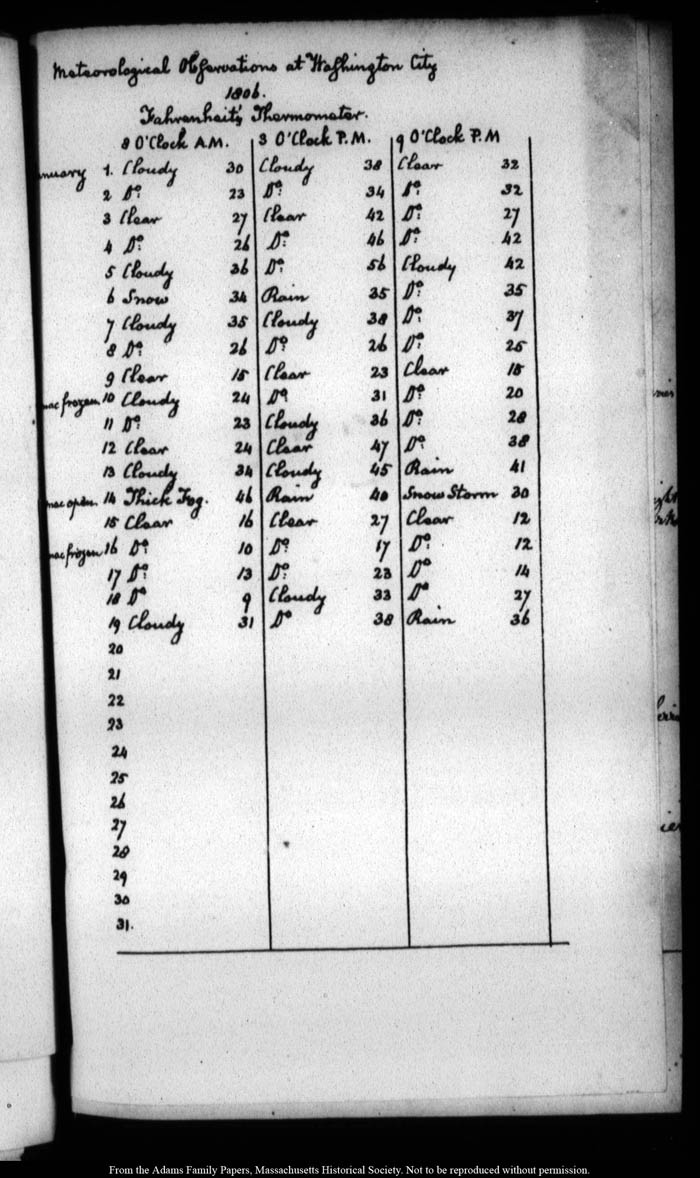 Meteorological Observations at Washington City
1806.
Fahrenheit's Thermometer.
8 O'Clock A.M. 3 O'Clock P.M. 9 O'Clock P.M
nuary 1. Cloudy 30 Cloudy 38 Clear 32
2 Do 23 Do 34 Do 32
3 Clear 27 Clear 42 Do 27
4 Do 26 Do 46 Do 42
5 Cloudy 36 Do 56 Cloudy 42
6 Snow 34 Rain 35 Do 35
7 Cloudy 35 Cloudy 38 Do 37
8 Do 26 Do 26 Do 25
9 Clear 15 Clear 23 Clear 15
mac frozen 10 Cloudy 24 Do 31 Do 20
11 Do 23 Cloudy 36 Do 28
12 Clear 24 Clear 47 Do 38
13 Cloudy 34 Cloudy 45 Rain 41
mac open. 14 Thick Fog. 46 Rain 40 Snow Storm 30
15 Clear 16 Clear 27 Clear 12
mac frozen 16 Do 10 Do 17 Do 12
17 Do 13 Do 23 Do 14
18 Do 9 Cloudy 33 Do 27
19 Cloudy 31 Do 38 Rain 36
20
21
22
23
24
25
26
27
28
29
30
31.
From the Adams Family Papers, Massachusetts Historical Society. Not to be reproduced without permission.